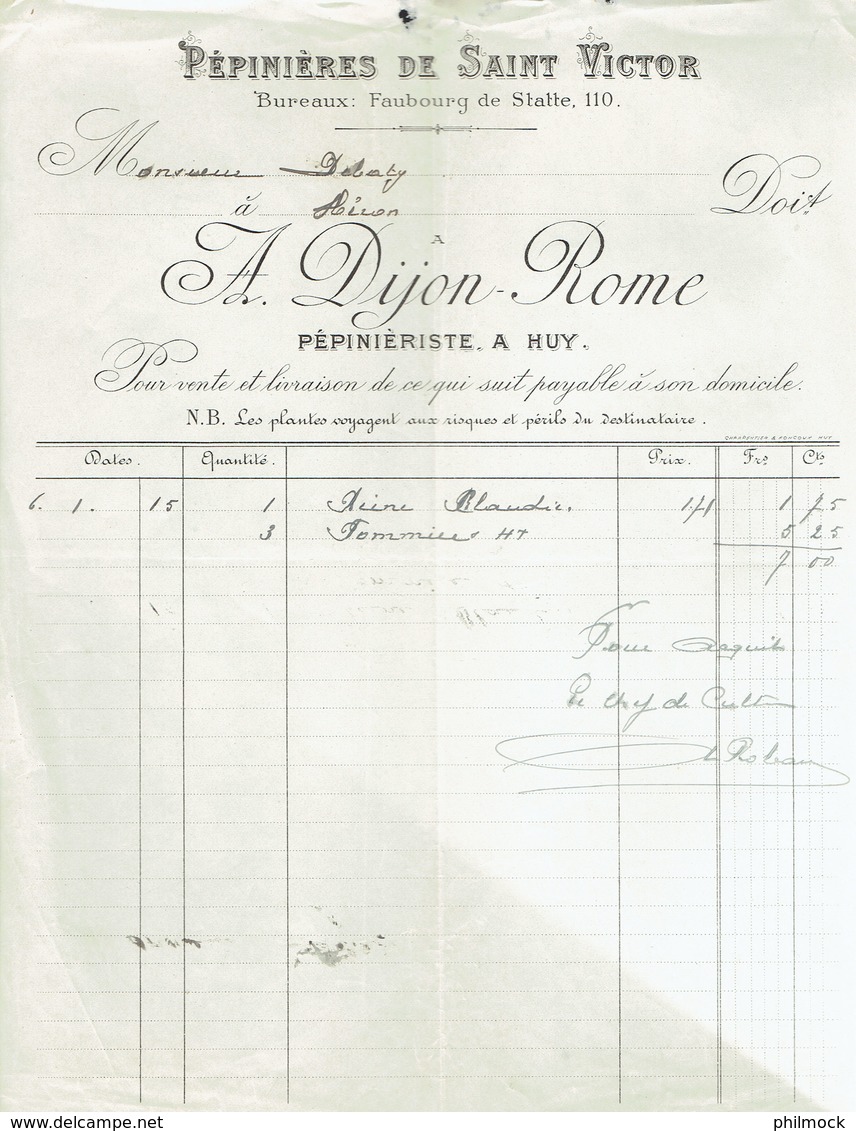 PÉPINIÈRES DE SAINT VICTOR
Bureaux: Faubourg de Statte, 110.
Monsieur Delaty
à Héron Doit
A
A. Dijon-Rome
PÉPINIÈRISTE, A HUY.
Pour vente et livraison de ce qui suit payable à son domicile.
N.B. Les plantes voyagent aux risques et périls du destinataire.
CHARPENTIER & PONCOUR HUY
Dates. Quantité. Prix. Frs Cts
6. 1. 15 1 Reine Claudie. 1 75
3 Pommiers HT 5 25
7 00
Pour acquit
Le chef de Culture
philmock